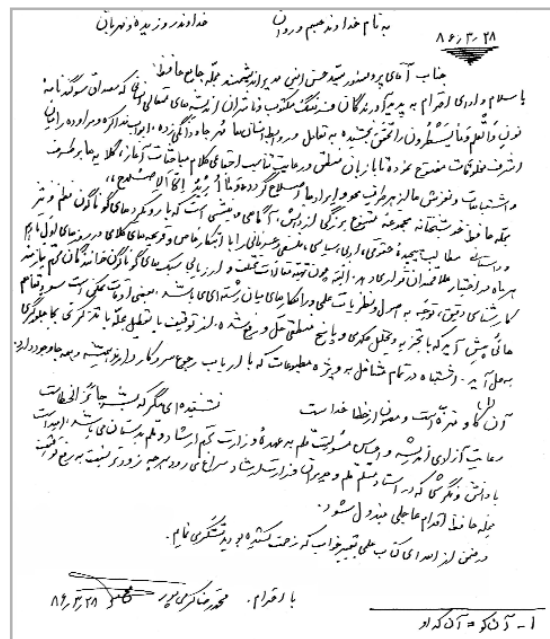 به نام خداوند حکیم و روان خداوند روزی‌ده و مهربان
۸۶٫۳٫۲۸
جناب آقای پروفسور سید حسن امین مدیر اندیشمند مجله جامع حافظ
با سلام و ادای احترام به پدیدآورندگان فرهنگ مکتوب و قدردان اندیشه‌های متعالی که مصداق سوگندنامهٔ
نون والقلم و ما یسطرون را تحقق بخشیده به تعامل و روابط انسان‌ها مُهر جاودانگی زده، ابواب مذاکره و مراوده را بیان
مفتوح نموده تا با زبان منطق و رعایت تناسب کلام مباحثات آغاز، گلایه‌ها برطرف
و اشتباهات و لغزش‌ها از هر طرف محو و ایرادها اصلاح گردد و ما اُریدُ اِلّا الاصلاح
مجله حافظ خوشبختانه مجموعه متنوع بزرگی از دانش، آگاهی و بینشی است که با رویکردهای گوناگون نظم و نثر
مطالب پیچیدهٔ حقوقی، ادبی، سیاسی، فلسفی، عرفانی را با ابتکار خاص و روزهای اول
هر ماه در اختیار علاقمندان قرار می‌دهد. البته چون مقالات مختلف و ارزیابی سبک‌های گوناگون خوانندگان محترم نیازمند
کارشناسی دقیق، توجه به اصول و نظریات علمی و راهکارهای میان رشته‌ای می‌باشد. بعضی اوقات ممکن است سوءتفاهم
هائی پیش آید که با تجزیه و تحلیل فکری و پاسخ منطقی حل و رفع شده، از توقیف یا تعطیل مجله با تذکری بجا جلوگیری
به عمل آید. اشتباه در تمام مشاغل به ویژه مطبوعات که با ارباب رجوع سر و کار دارد همیشه و همه جا وجود دارد.
آن کاو منزه است و مصون از خطا خداست نشنیده‌ای مگر که بشر جائز الخطاست
رعایت آزادی اندیشه و احساس مسئولیت قلم به عهدهٔ وزارت ارشاد و قلم بدستان می‌باشد. امید است
با دانش و نگرشی که در استاد مسلم قلم و مدیران وزارت ارشاد سراغ می‌رود هر چه زودتر نسبت به رفع توقیف
مجله حافظ اقدام عاجلی مبذول شود.
در ضمن از اهدای کتاب علمی تعبیر خواب که زحمت کشیده بودید تشکر می‌نمایم.
با احترام. محمدرضا کرمی‌پور ۸۶٫۳٫۲۸
۱- آن کو = آن که او